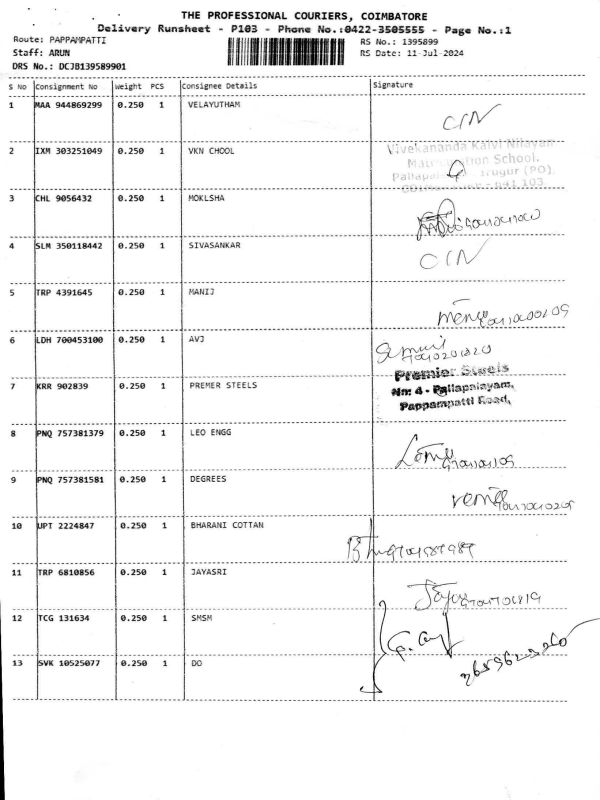 THE PROFESSIONAL COURIERS, COIMBATORE
Delivery Runsheet - P103 - Phone No.:0422-3505555 - Page No.:1
Route: PAPPAMPATTI
RS No.: 1395899
Staff: ARUN
RS Date: 11-Jul-2024
DRS No.: DCJB139589901
S No Consignment No Weight PCS Consignee Details Signature
1 MAA 944869299 0.250 1 VELAYUTHAM
2 IXM 303251049 0.250 1 VKN CHOOL
Vivekananda Kalvi Nilayan
School.
3 CHL 9056432 0.250 1 MOKLSHA
4 SLM 350118442 0.250 1 SIVASANKAR
5 TRP 4391645 0.250 1 MANIJ
6 LDH 700453100 0.250 1 AVJ
7 KRR 902839 0.250 1 PREMER STEELS
Premier Steels
No: 4 - Pallapalayam,
Pappampatti Road,
8 PNQ 757381379 0.250 1 LEO ENGG
9 PNQ 757381581 0.250 1 DEGREES
10 UPT 2224847 0.250 1 BHARANI COTTAN
11 TRP 6810856 0.250 1 JAYASRI
12 TCG 131634 0.250 1 SMSM
13 SVK 10525077 0.250 1 DO